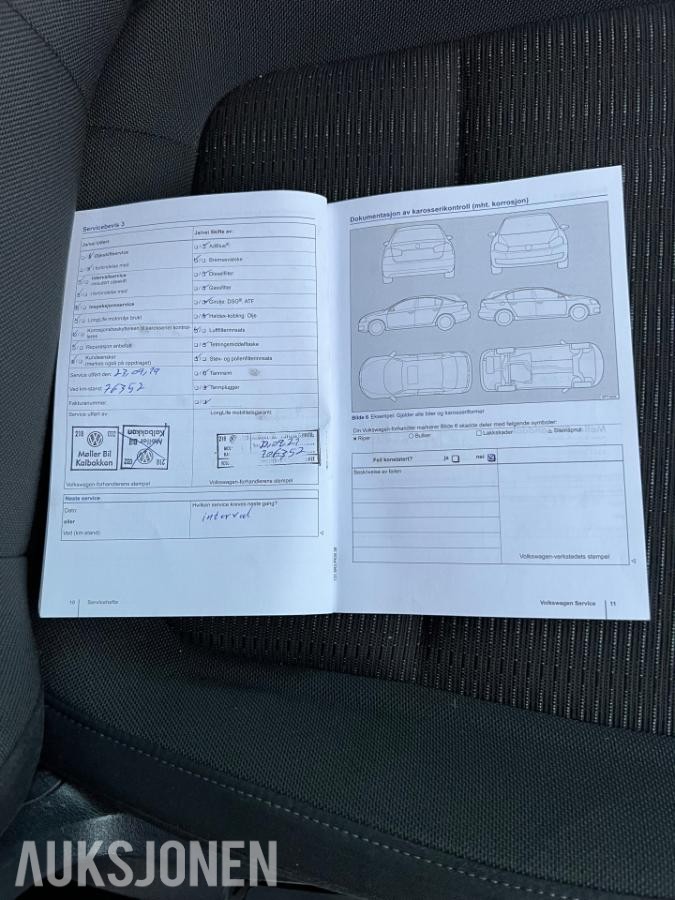 Servicebevis 3
Ja/nei Utført
Ja/nei Skifte av:
Oljeskiftservice
AdBlue®
i forbindelse med
Bremsevæske
Intervallservice
Dieselfilter
i forbindelse med
Gassfilter
Inspeksjonsservice
Girolje: DSG®, ATF
LongLife motorolje brukt
Haldex-kobling: Olje
Luftfilterinnsats
Reparasjon anbefalt
Tetningsmiddelflaske
Kundeønsker
(merkes også på oppdraget)
Støv- og pollenfilterinnsats
Service utført den:
Tannrem
Ved km-stand: 76352
Tennplugger
Fakturanummer:
Service utført av:
LongLife mobilitetsgaranti
218
Møller Bil
Kalbakken
Volkswagen-forhandlerens stempel
Volkswagen-forhandlerens stempel
Neste service
Dato:
Hvilken service kreves neste gang?
eller
interval
Ved (km-stand):
10
Servicehefte
Dokumentasjon av karosserikontroll (mht. korrosjon)
Bilde 6 Eksempel: Gjelder alle biler og karosseriformer
Din Volkswagen-forhandler markerer Bilde 6 skadde deler med følgende symboler:
Riper
Bulker
Lakkskader
Steinsprut
Feil konstatert?
ja
nei
Beskrivelse av feilen
Volkswagen-verkstedets stempel
Volkswagen Service
11
AUKSJONEN